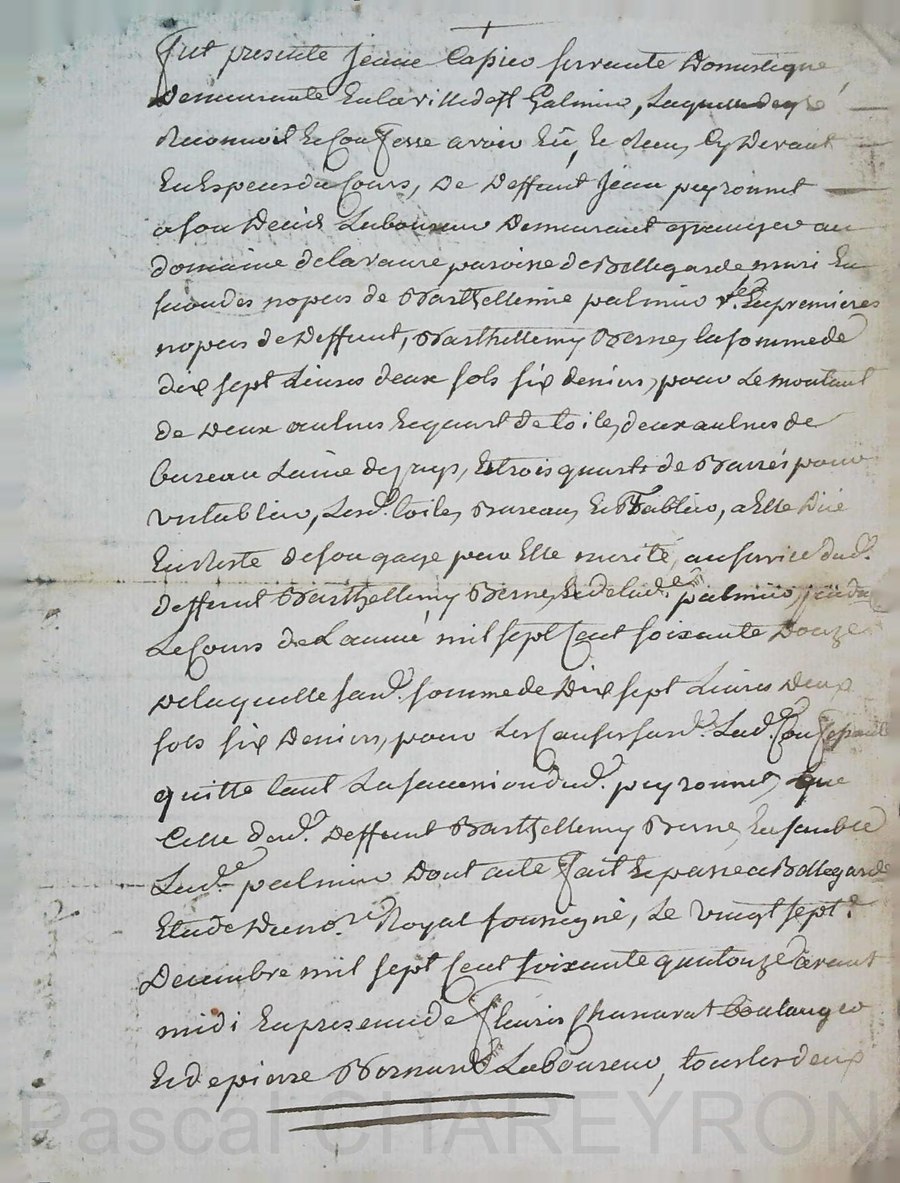 Fut presente Jeanne Capier servante Domestique
Demeurante En la ville de St Galmier, Laquelle de gré
Reconnoit Et Confesse avoir Eü, Et Receu Cy Devant
En Especes du Cours, De Deffunt Jean peyronnet
a son Deceds Laboureur Demeurant granger au
domaine de la vaure paroisse de Bellegarde mari En
secondes nopces de Barthellemie palmier vve En premieres
nopces de Deffunt, Barthellemy Berne, la somme de
dix sept Livres deux sols six deniers, pour Le montant
de Deux aulnes Et quart de toile, deux aulnes de
bureau Laine du pays, Et trois quarts de Barrés pour
un tablier, Lesd. toile, Bureau, Et Tablier, a Elle Düe
En Reste de son gage par Elle merité, au service dud.
deffunt Barthellemy Berne, Et de lad.e palmier,
Le Cours de L'année mil sept Cent soixante Douze
De laquelle susd. somme de Dix sept Livres Deux
sols six Deniers, pour Les Causes susd. Lad. Confessante
quitte tant La succession dud. peyronnet, que
Celle dud. Deffunt Barthellemy Berne, Ensemble
Lad.e palmier Dont acte fait Et passé a Bellegarde
Etude Du no.re Royal soussigné, Le vingt sept.
Decembre mil sept Cent soixante quatorze avant
midi En presence de fleuris Chanavat Boulanger
Et de pierre Bornard Laboureur, tous les deux
Pascal CHAREYRON